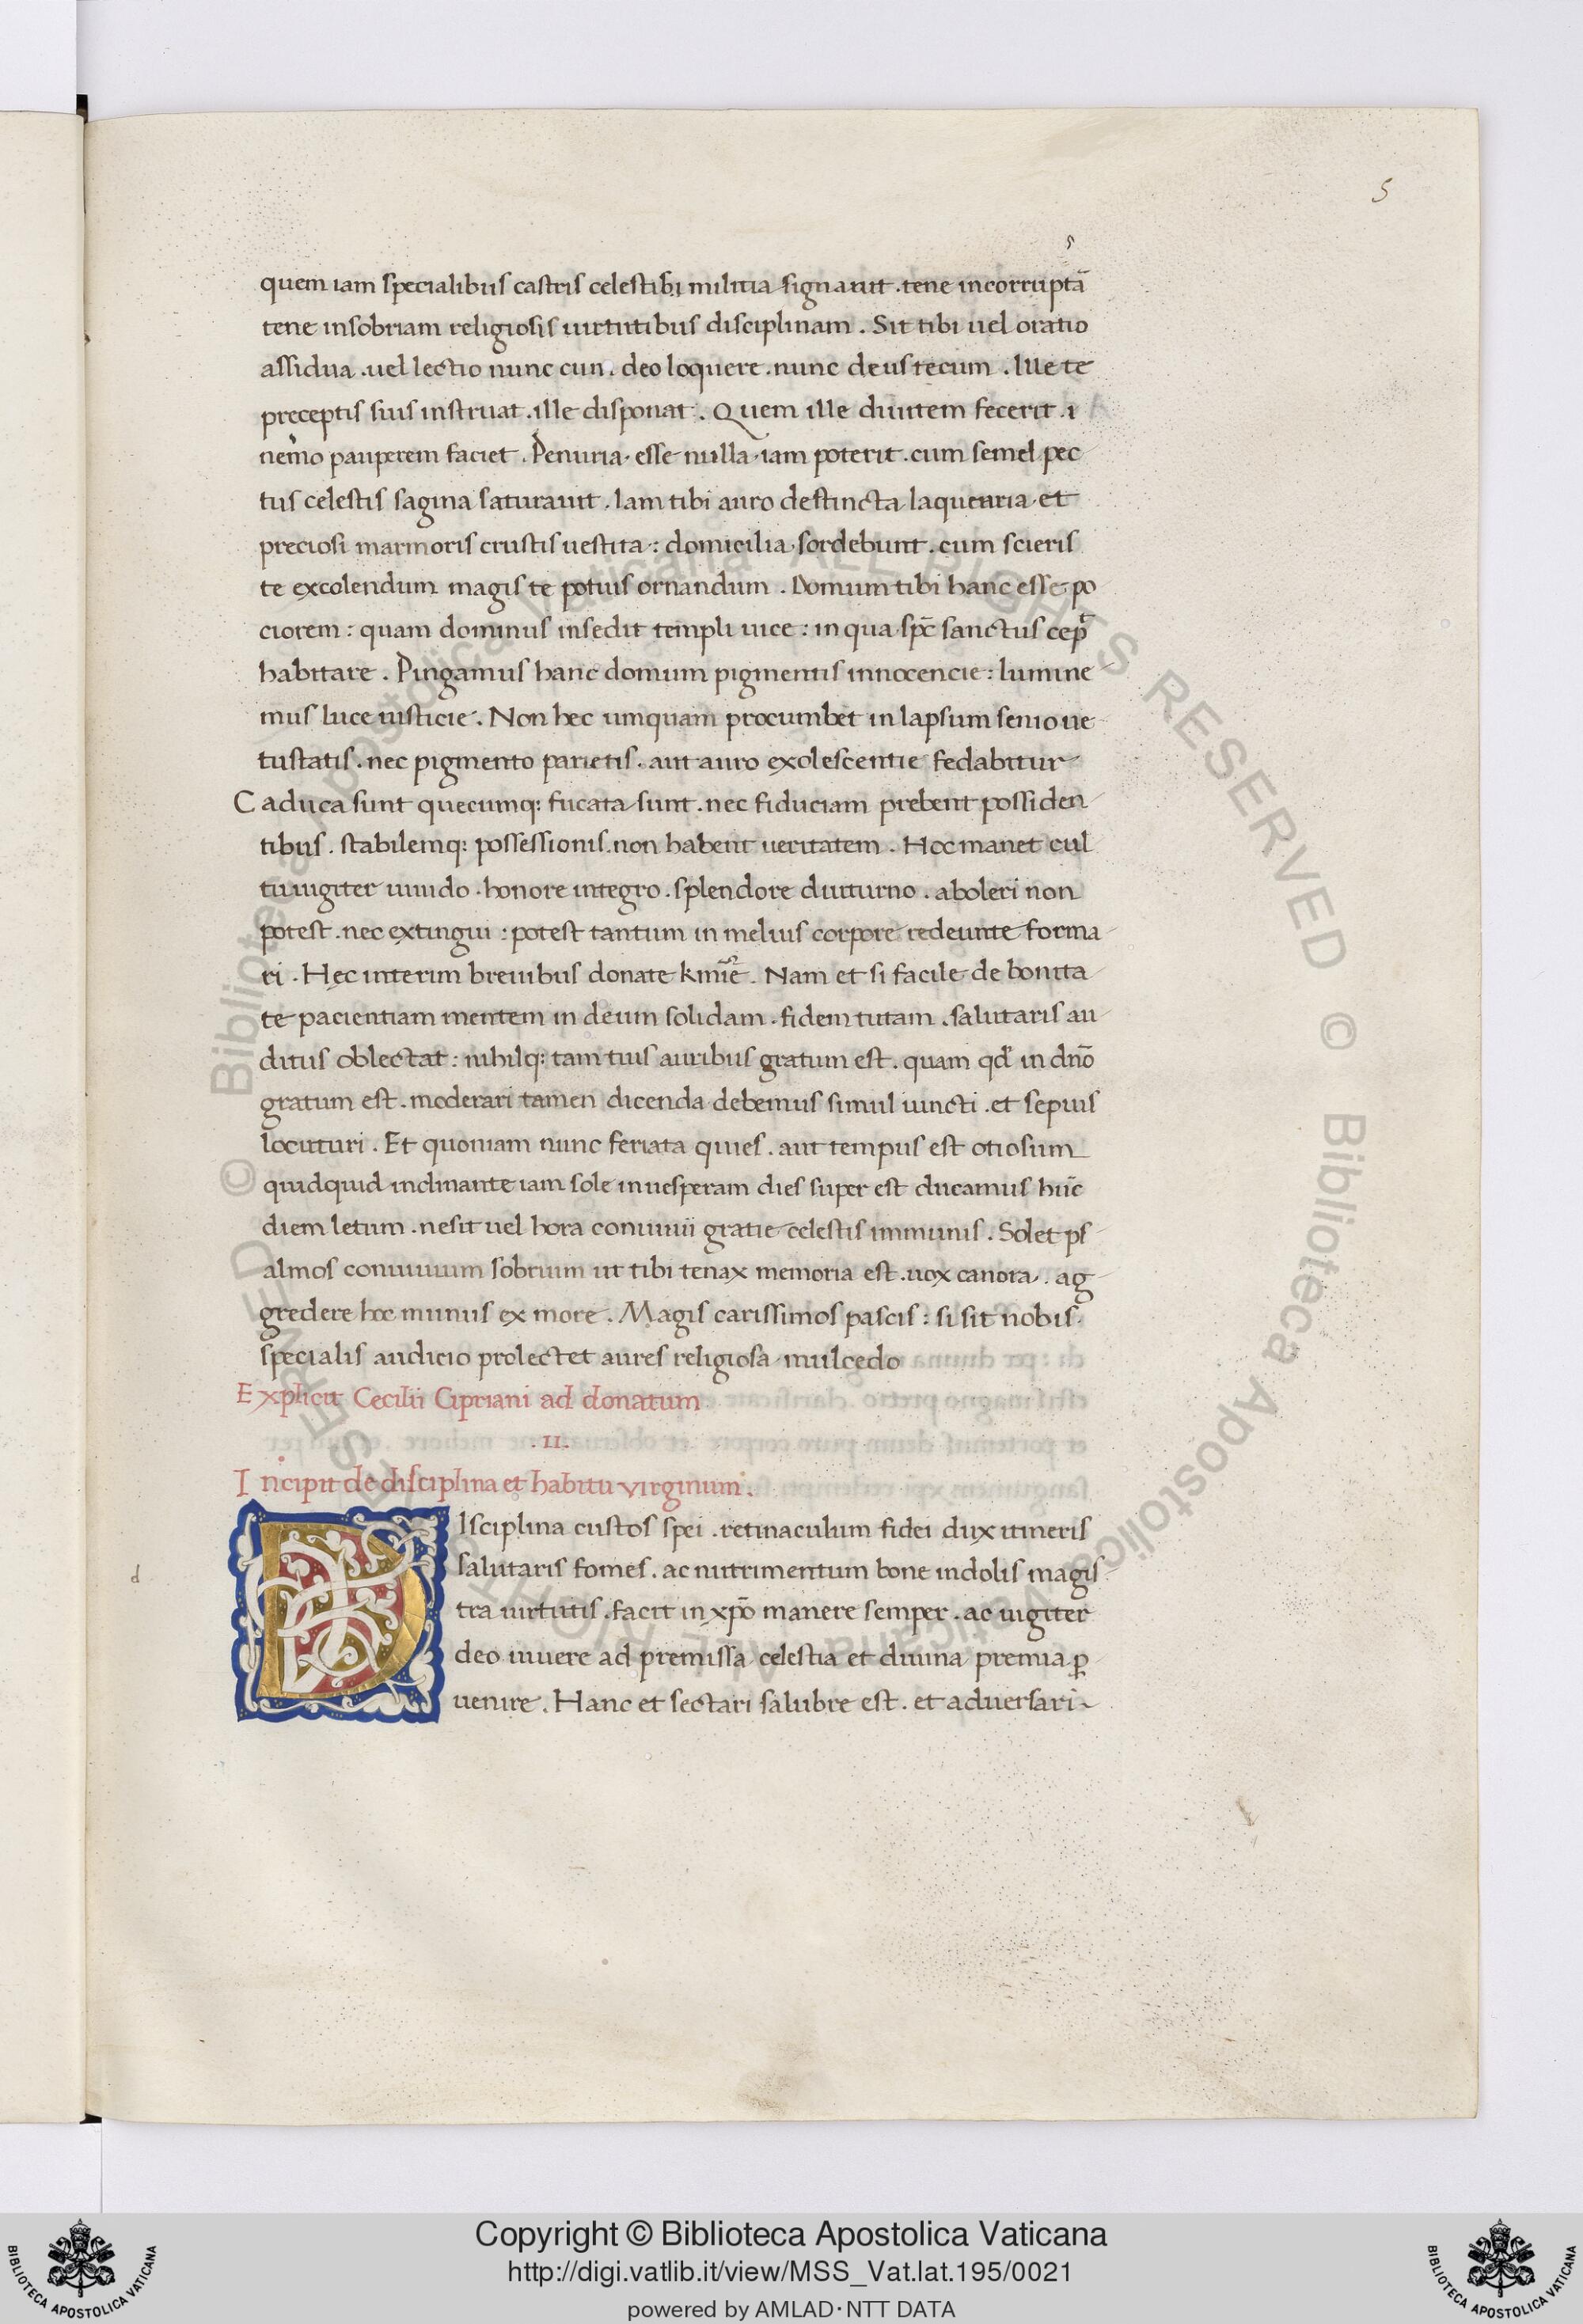 5
quem iam specialibus castris celestibi militia signauit . tene incorruptā
tene in sobriam religiosis uirtutibus disciplinam . Sit tibi uel oratio
assidua . uel lectio nunc cun . deo loquere . nunc deus tecum . Ille te
preceptis suis instruat . ille disponat . Quem ille diuitem fecerit . i
nemo pauperem faciet . Penuria esse nulla iam poterit . cum semel pec
tus celestis sagina saturauit . Iam tibi auro destincta laquearia et
preciosi marmoris crustis uestita : domicilia sordebunt . cum scieris
te excolendum magis te potius ornandum . Domum tibi hanc esse po
ciorem : quam dominus insedit templi uice : in qua sp̄c sanctus cep̄
habitare . Pingamus hanc domum pigmentis innocencie : lumine
mus luce iusticie . Non hec umquam procumbet in lapsum senio ue
tustatis . nec pigmento parietis . aut auro exolescentie fedabitur
Caduca sunt quecumq: fucata sunt . nec fiduciam prebent possiden
tibus . stabilemq: possessionis . non habent ueritatem . Hoc manet cul
tu iugiter uiuido . honore integro . splendore diuturno . aboleri non
potest . nec extingui : potest tantum in melius corpore redeunte forma
ri . Hęc interim breuibus donate kmē . Nam et si facile de bonita
te pacientiam mentem in deum solidam . fidem tutam . salutaris au
ditus oblectat : nihilq: tam tuis auribus gratum est . quam qđ in dnō
gratum est . moderari tamen dicenda debemus simul iuncti . et sepius
locuturi . Et quoniam nunc feriata quies . aut tempus est otiosum
quidquid inclinante iam sole in uesperam dies super est ducamus hūc
diem letum . ne sit uel hora conuiuii gratie celestis immunis . Solet ps
almos conuiuium sobrium ut tibi tenax memoria est . uox canora . ag
gredere hoc munus ex more . Magis carissimos pascis : si sit nobis
specialis audicio prolectet aures religiosa mulcedo
Explicit Cecilii Cipriani ad donatum
. II .
Incipit de disciplina et habitu virginum .
d
Isciplina custos spei . retinaculum fidei dux itineris
salutaris fomes . ac nutrimentum bone indolis magis
tra uirtutis . facit in xp̄o manere semper . ac iugiter
deo uiuere ad premissa celestia et diuina premia ꝑ
uenire . Hanc et sectari salubre est . et aduersari
© Biblioteca Apostolica Vaticana ALL RIGHTS RESERVED
© Biblioteca Apostolica Vaticana ALL RIGHTS RESERVED
Copyright © Biblioteca Apostolica Vaticana
http://digi.vatlib.it/view/MSS_Vat.lat.195/0021
powered by AMLAD·NTT DATA
BIBLIOTECA APOSTOLICA VATICANA
BIBLIOTECA APOSTOLICA VATICANA